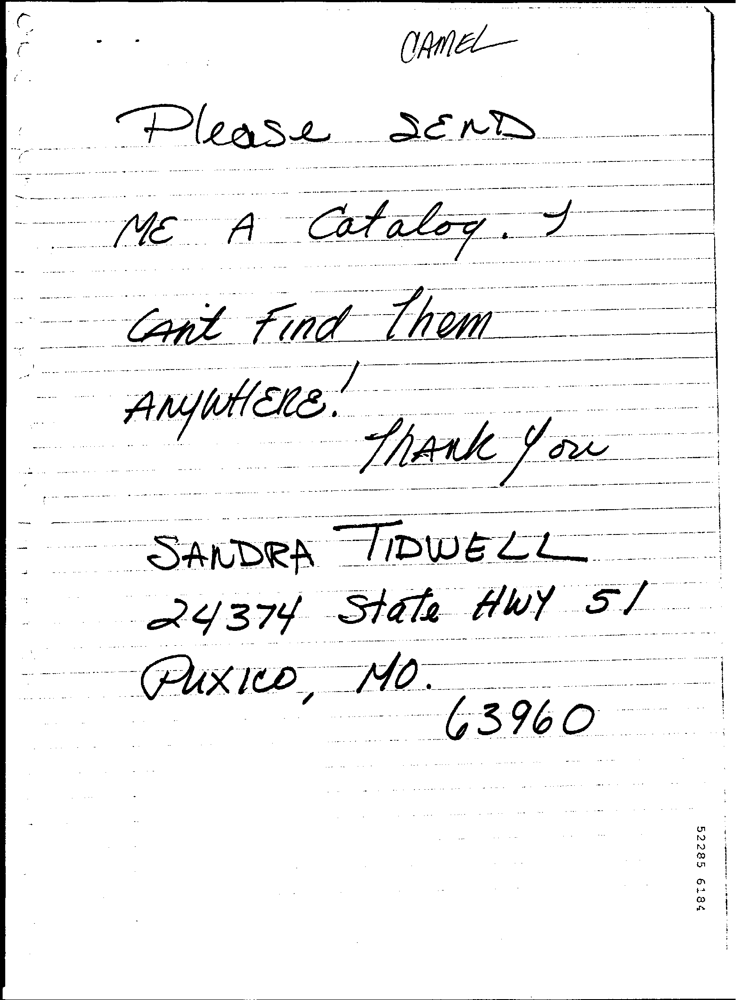 CAMEL
Please SEND
ME A Catalog. I
CAn't Find Them
ANYWHERE!
Thank You
SANDRA TIDWELL
24374 State HWY 51
PUXICO, MO.
63960
52285 6184